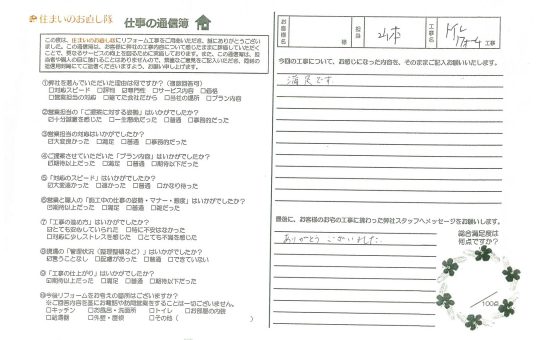 住まいのお直し隊 仕事の通信簿
この度は、住まいのお直し隊にリフォーム工事をご用命いただき、誠にありがとうござい
ました。この通信簿は、お客様に弊社の工事内容について感じたままに評価していただく
①弊社を選んでいただいた理由は何ですか?(複数回答可)
□対応スピード □評判 ☑専門性 □サービス内容 □価格
□営業担当の対応 □建てた会社だから □当社の場所 □プラン内容
②営業担当の「ご要望に対する姿勢」はいかがでしたか?
☑十分誠意を感じた □一生懸命だった □普通 □事務的だった
③営業担当の対応はいかがでしたか?
☑大変良かった □満足 □普通 □事務的だった
④ご提案させていただいた「プラン内容」はいかがでしたか?
☑期待以上だった □満足 □普通 □期待以下だった
⑤「対応のスピード」はいかがでしたか?
☑大変速かった □速かった □普通 □かなり待った
⑥営業と職人の「施工中の仕事の姿勢・マナー・態度」はいかがでしたか?
☑期待以上だった □満足 □普通 □雑だった
⑦「工事の進め方」はいかがでしたか?
☑とても安心していられた □特に不安はなかった
□対応に少しストレスを感じた □とても不満を感じた
⑧現場の「管理状況(整理整頓など)」はいかがでしたか?
☑言うことなし □満足 □普通 □できていない
⑨「工事の仕上がり」はいかがでしたか?
☑期待以上だった □満足 □普通 □期待以下だった
⑩今後リフォームをお考えの箇所はございますか?
※ご回答内容を基にお電話や訪問営業をすることは一切ございません。
□キッチン □お風呂・洗面所 □トイレ □お部屋の内装
□給湯器 □外壁・屋根 □その他( )
お客様名 様 担当 山本 工事名 トイレリフォーム 工事
今回の工事について、お感じになった内容を、そのままご記入お願いいたします。
満足です。
最後に、お客様のお宅の工事に携わった弊社スタッフへメッセージをお願いします。
ありがとうございました。
総合満足度は
何点ですか?
/100点